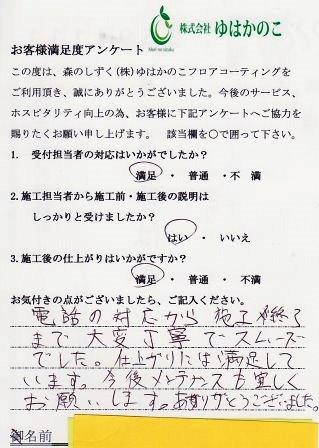 株式会社 ゆはかのこ
Mori no sizuku
お客様満足度アンケート
この度は、森のしずく(株)ゆはかのこフロアコーティングを
ご利用頂き、誠にありがとうございました。今後のサービス、
ホスピタリティ向上の為、お客様に下記アンケートへご協力を
賜りたくお願い申し上げます。 該当欄を○で囲って下さい。
1. 受付担当者の対応はいかがでしたか?
満足 ・ 普通 ・不 満
2.施工担当者から施工前・施工後の説明は
しっかりと受けましたか?
はい ・ いいえ
3.施工後の仕上がりはいかがですか?
満足 ・ 普通 ・ 不満
お気付きの点がございましたら、ご記入ください。
電話の対応から施工終了
まで大変丁寧でスムーズ
でした。仕上がりには満足して
います。今後メンテナンスも宜しく
お願いします。ありがとうございました。
御名前